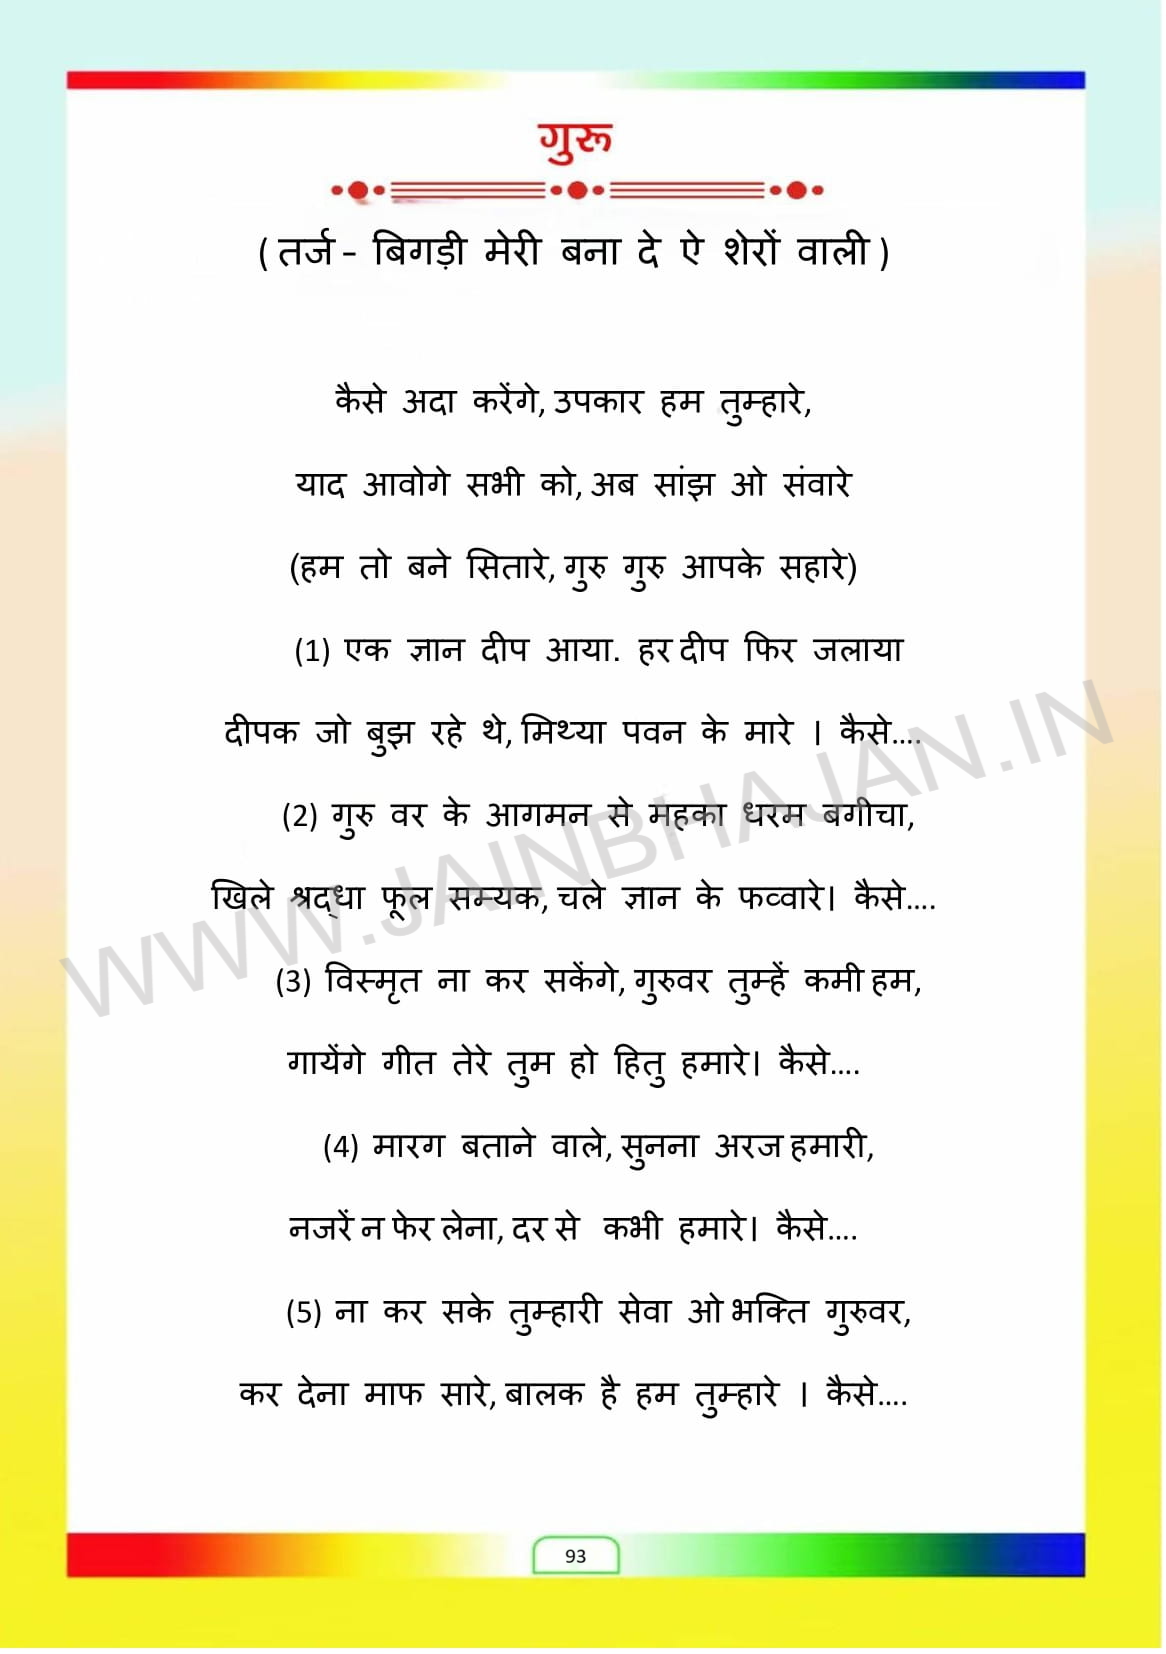 गुरू
( तर्ज – बिगड़ी मेरी बना दे ऐ शेरों वाली )
कैसे अदा करेंगे, उपकार हम तुम्हारे,
याद आवोगे सभी को, अब सांझ ओ संवारे
(हम तो बने सितारे, गुरु गुरु आपके सहारे)
(1) एक ज्ञान दीप आया. हर दीप फिर जलाया
दीपक जो बुझ रहे थे, मिथ्या पवन के मारे । कैसे....
(2) गुरु वर के आगमन से महका धरम बगीचा,
खिले श्रद्धा फूल सम्यक, चले ज्ञान के फव्वारे। कैसे....
(3) विस्मृत ना कर सकेंगे, गुरुवर तुम्हें कमी हम,
गायेंगे गीत तेरे तुम हो हितु हमारे। कैसे....
(4) मारग बताने वाले, सुनना अरज हमारी,
नजरें न फेर लेना, दर से कभी हमारे। कैसे....
(5) ना कर सके तुम्हारी सेवा ओ भक्ति गुरुवर,
कर देना माफ सारे, बालक है हम तुम्हारे । कैसे....
WWW.JAINBHAJAN.IN
93